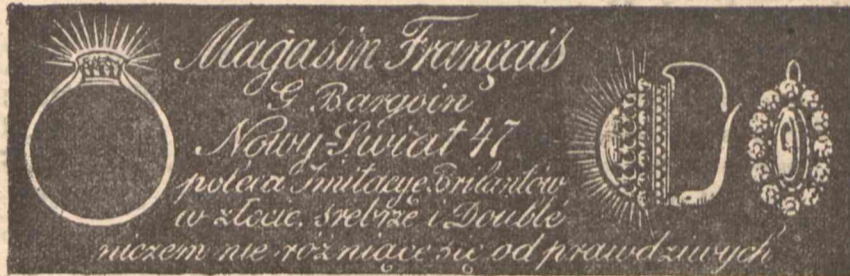 Magasin Français
G Bargoin
Nowy-Świat 47
poleca Imitacye Brilantów
w złocie, srebrze i Doublé
niczem nie różniące się od prawdziwych